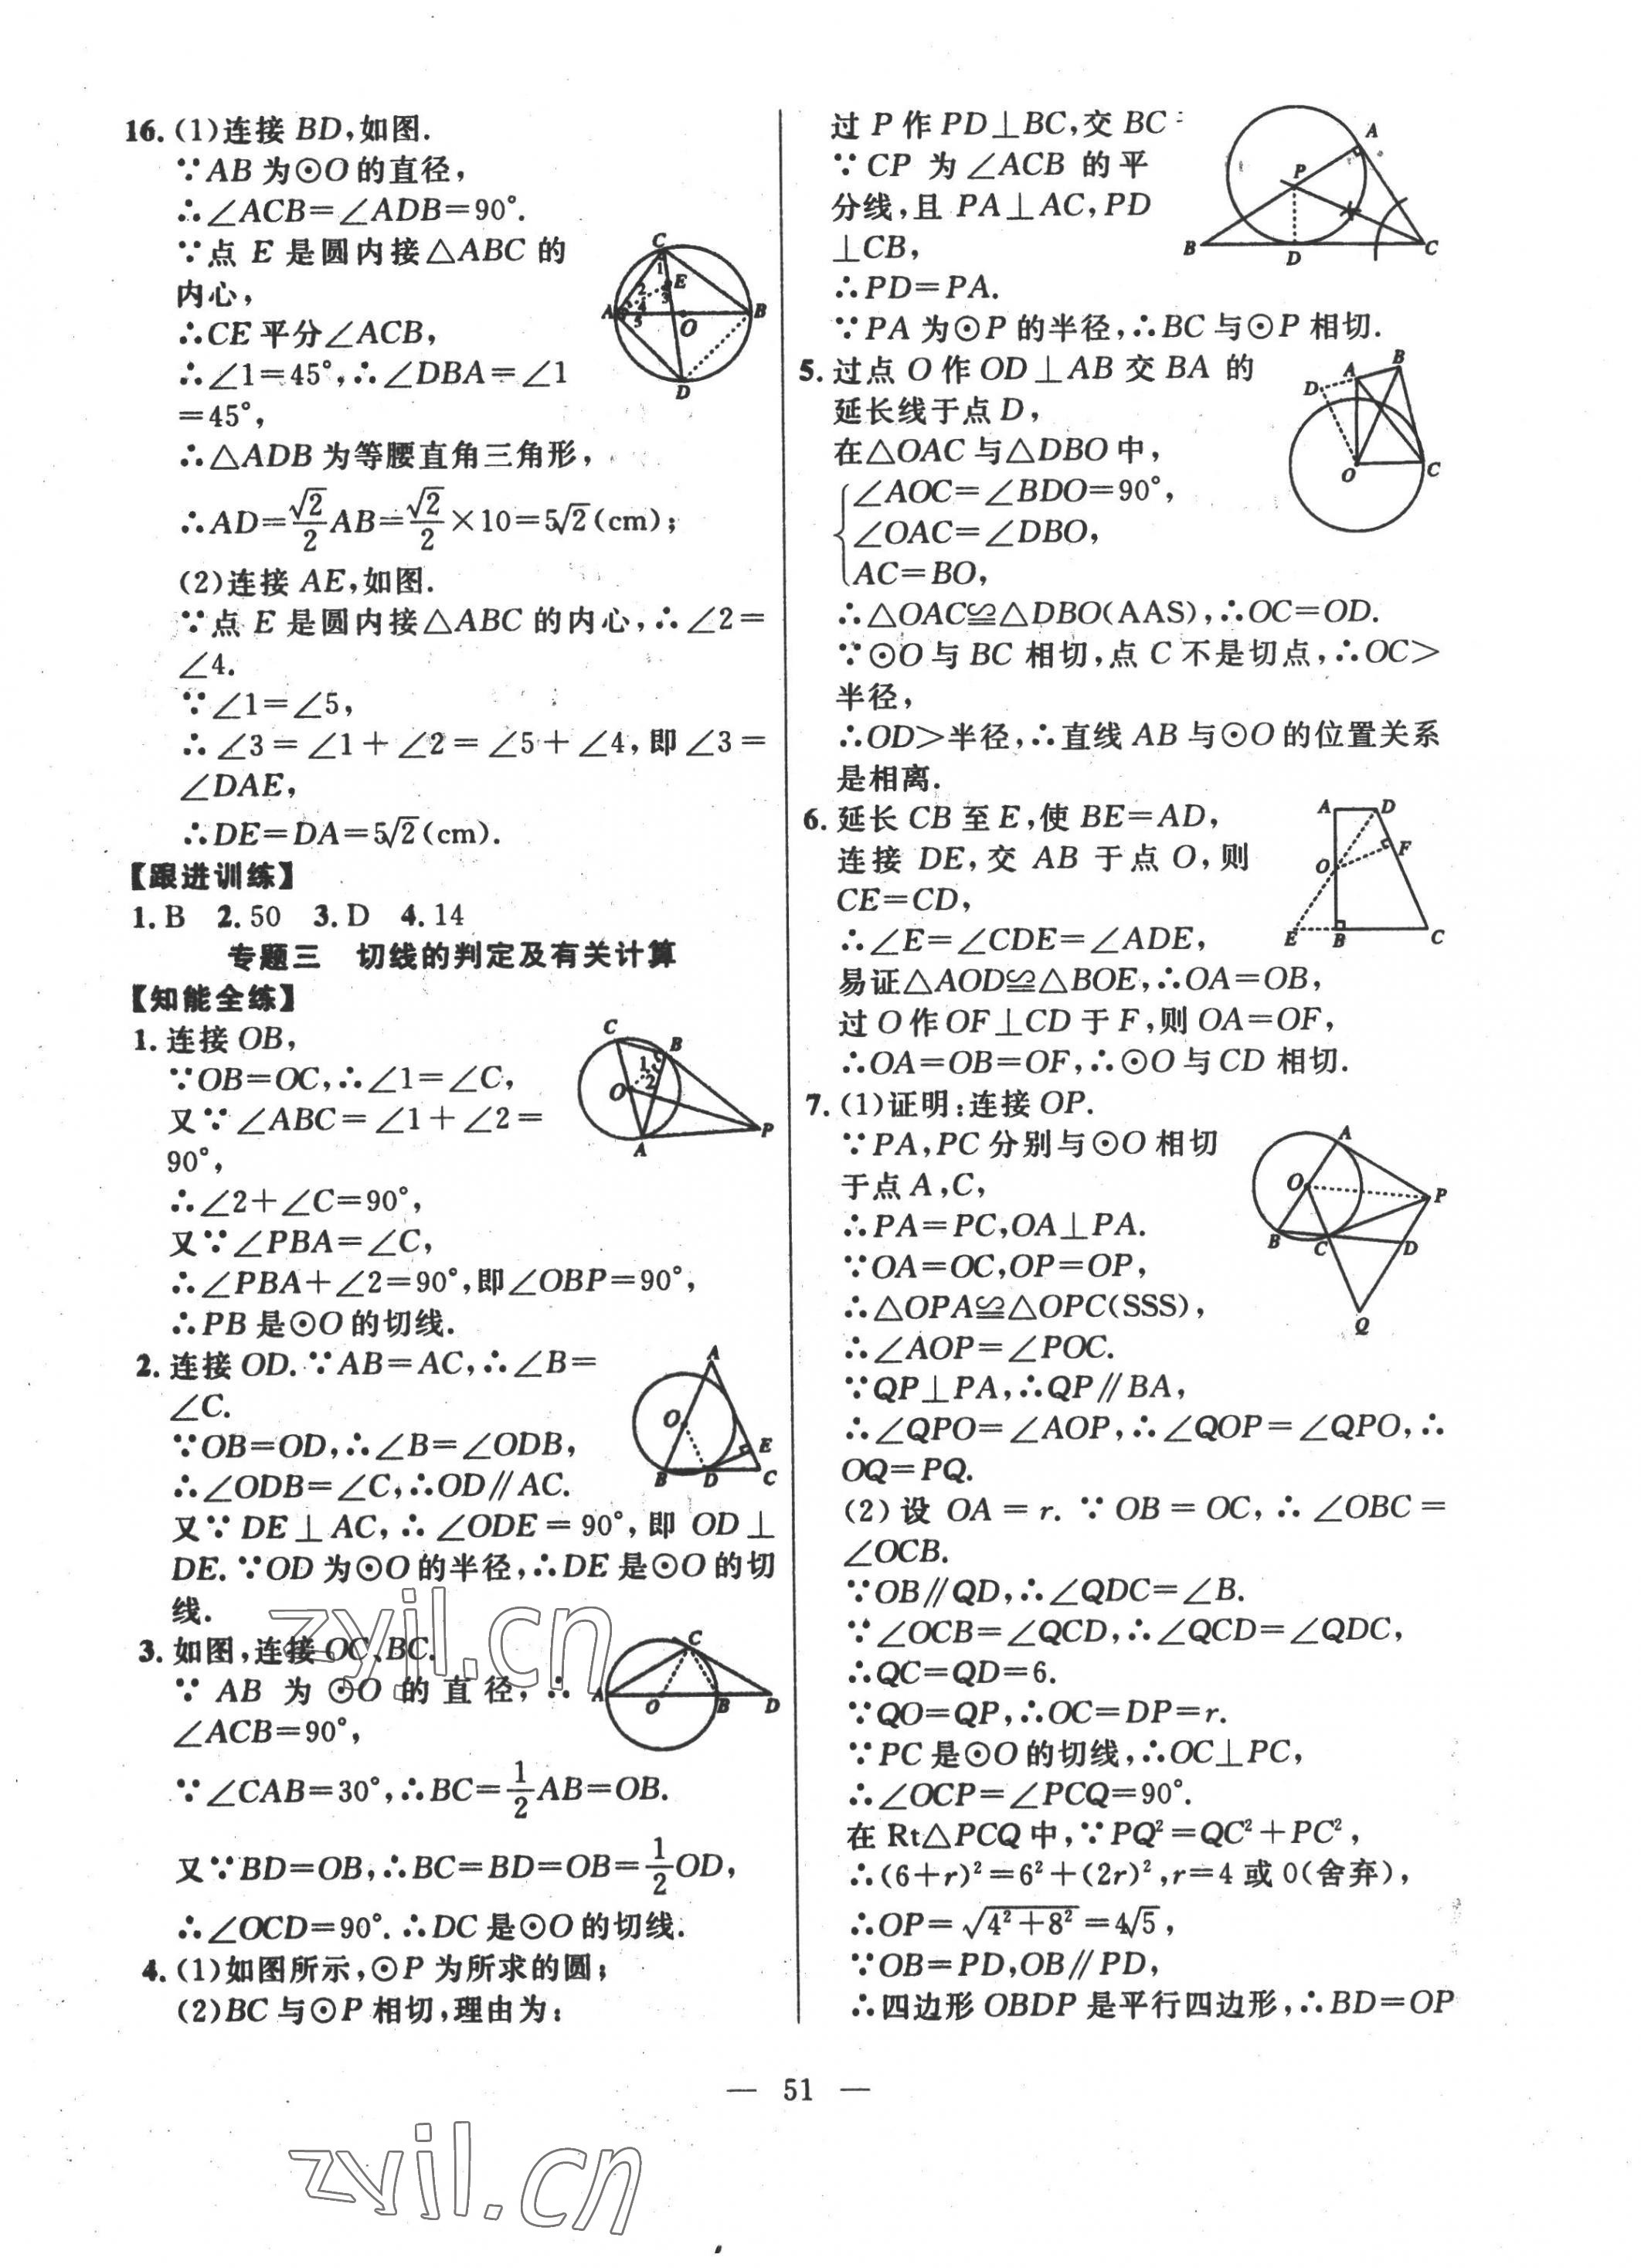 16. (1)连接 BD,如图.
∵AB 为⊙O 的直径,
∴∠ACB=∠ADB=90°.
∵点 E 是圆内接△ABC 的
内心,
∴CE 平分∠ACB,
∴∠1=45°,∴∠DBA=∠1
=45°,
∴△ADB 为等腰直角三角形,
∴AD=√2/2 AB=√2/2×10=5√2(cm);
(2)连接 AE,如图.
∵点 E 是圆内接△ABC 的内心,∴∠2=
∠4.
∵∠1=∠5,
∴∠3=∠1+∠2=∠5+∠4,即∠3=
∠DAE,
∴DE=DA=5√2(cm).
【跟进训练】
1. B 2. 50 3. D 4. 14
专题三 切线的判定及有关计算
【知能全练】
1. 连接 OB,
∵OB=OC,∴∠1=∠C,
又∵∠ABC=∠1+∠2=
90°,
∴∠2+∠C=90°,
又∵∠PBA=∠C,
∴∠PBA+∠2=90°,即∠OBP=90°,
∴PB 是⊙O 的切线.
2. 连接 OD. ∵AB=AC,∴∠B=
∠C.
∵OB=OD,∴∠B=∠ODB,
∴∠ODB=∠C,∴OD∥AC.
又∵DE⊥AC,∴∠ODE=90°,即 OD⊥
DE. ∵OD 为⊙O 的半径,∴DE 是⊙O 的切
线.
3. 如图,连接 OC、BC.
∵ AB 为 ⊙O 的直径,∴
∠ACB=90°,
∵∠CAB=30°,∴BC=1/2 AB=OB.
又∵BD=OB,∴BC=BD=OB=1/2 OD,
∴∠OCD=90°. ∴DC 是⊙O 的切线.
4. (1)如图所示,⊙P 为所求的圆;
(2)BC 与⊙P 相切,理由为:
过 P 作 PD⊥BC,交 BC
∵ CP 为 ∠ACB 的平
分线,且 PA⊥AC,PD
⊥CB,
∴PD=PA.
∵PA 为⊙P 的半径,∴BC 与⊙P 相切.
5. 过点 O 作 OD⊥AB 交 BA 的
延长线于点 D,
在△OAC 与△DBO 中,
∠AOC=∠BDO=90°,
∠OAC=∠DBO,
AC=BO,
∴△OAC≌△DBO(AAS),∴OC=OD.
∵⊙O 与 BC 相切,点 C 不是切点,∴OC>
半径,
∴OD>半径,∴直线 AB 与⊙O 的位置关系
是相离.
6. 延长 CB 至 E,使 BE=AD,
连接 DE,交 AB 于点 O,则
CE=CD,
∴∠E=∠CDE=∠ADE,
易证△AOD≌△BOE,∴OA=OB,
过 O 作 OF⊥CD 于 F,则 OA=OF,
∴OA=OB=OF,∴⊙O 与 CD 相切.
7. (1)证明:连接 OP.
∵PA,PC 分别与⊙O 相切
于点 A,C,
∴PA=PC,OA⊥PA.
∵OA=OC,OP=OP,
∴△OPA≌△OPC(SSS),
∴∠AOP=∠POC.
∵QP⊥PA,∴QP∥BA,
∴∠QPO=∠AOP,∴∠QOP=∠QPO,∴
OQ=PQ.
(2)设 OA=r. ∵OB=OC,∴∠OBC=
∠OCB.
∵OB∥QD,∴∠QDC=∠B.
∵∠OCB=∠QCD,∴∠QCD=∠QDC,
∴QC=QD=6.
∵QO=QP,∴OC=DP=r.
∵PC 是⊙O 的切线,∴OC⊥PC,
∴∠OCP=∠PCQ=90°.
在 Rt△PCQ 中,∵PQ²=QC²+PC²,
∴(6+r)²=6²+(2r)²,r=4 或 0(舍弃),
∴OP=√(4²+8²)=4√5,
∵OB=PD,OB∥PD,
∴四边形 OBDP 是平行四边形,∴BD=OP
— 51 —
zyjl.cn
zyjl.cn